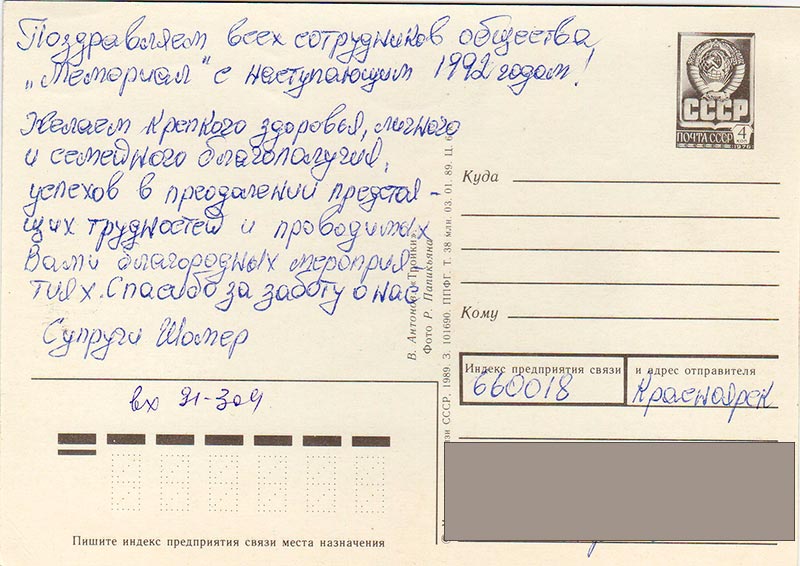 Поздравляем всех сотрудников общества
„Мемориал" с наступающим 1992 годом!
Желаем крепкого здоровья, личного
и семейного благополучия,
успехов в преодалении предстоя-
щих трудностей и проводимых
Вами благородных мероприя-
тиях. Спасибо за заботу о нас
Супруги Шомер
вх 91-304
Пишите индекс предприятия связи места назначения
В. Антонов. «Тройки»
Фото Р. Папикьяна
СССР, 1989. З. 101690. ППФГ. Т. 38 млн. 03. 01. 89. Ц.
СССР
ПОЧТА СССР
4
КОП
1976
Куда
Кому
Индекс предприятия связи и адрес отправителя
660018 Красноярск